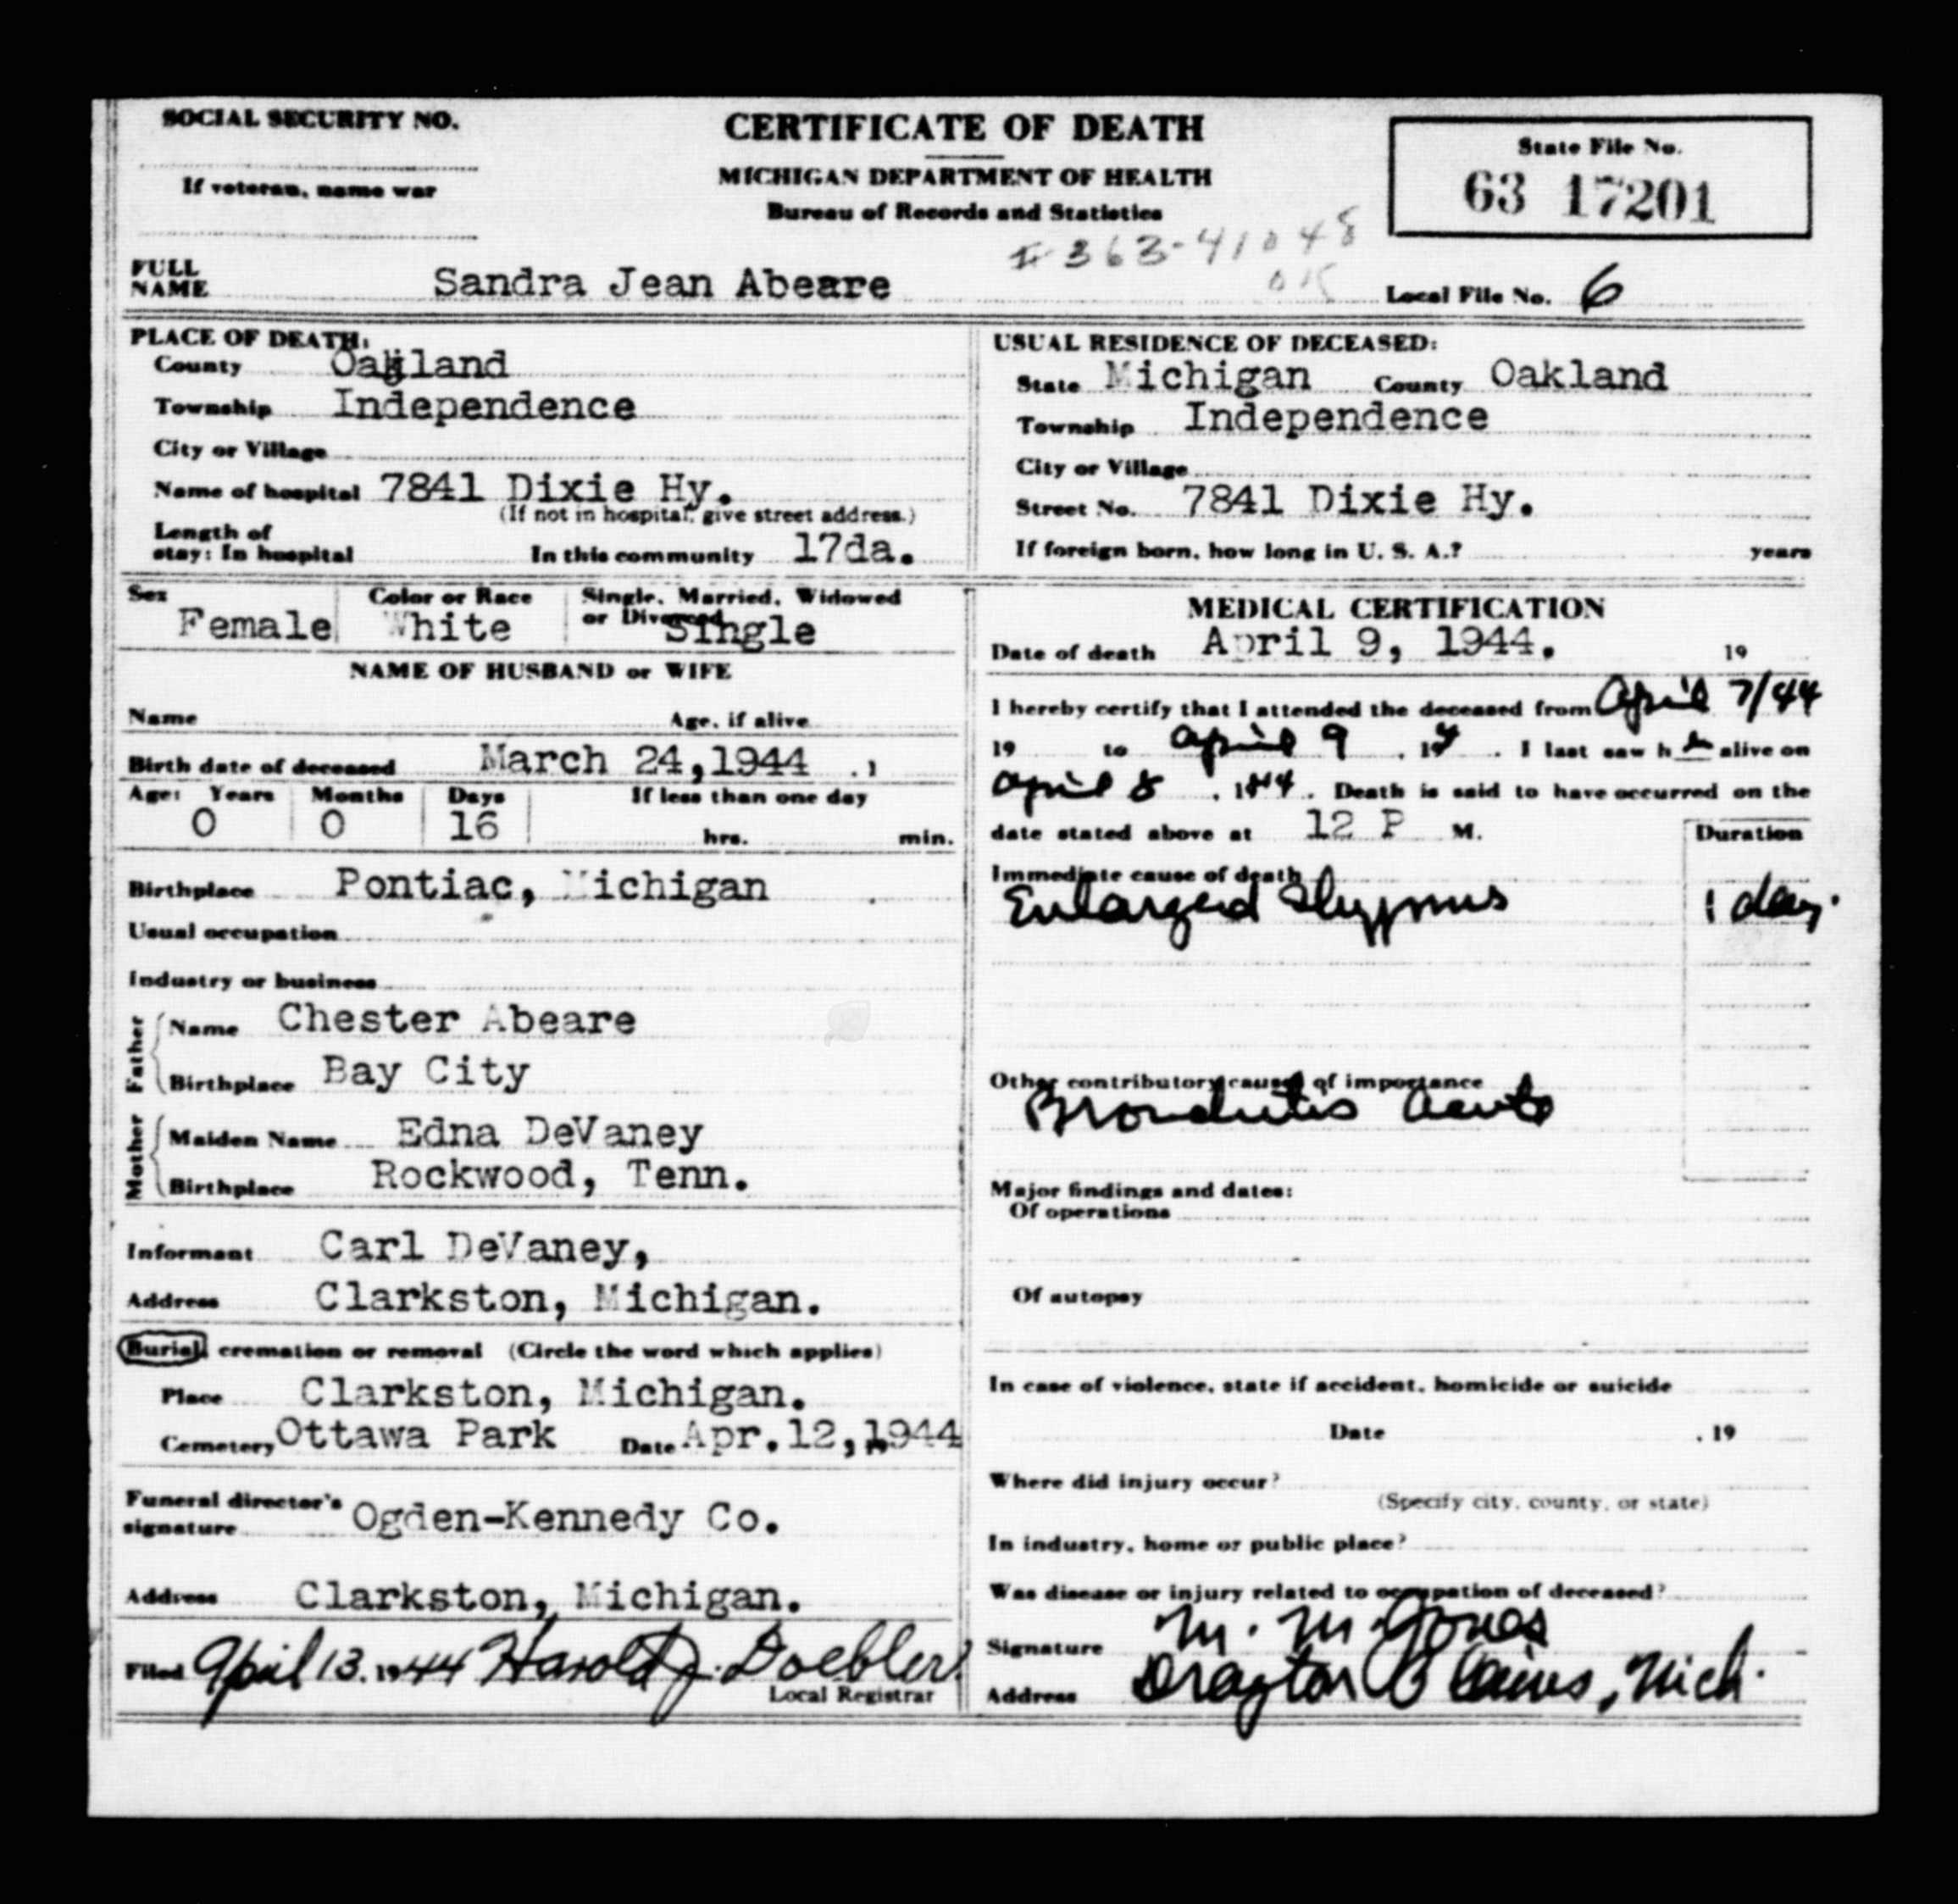 SOCIAL SECURITY NO.
If veteran, name war
CERTIFICATE OF DEATH
MICHIGAN DEPARTMENT OF HEALTH
Bureau of Records and Statistics
State File No.
63 17201
# 363-41048
OK
FULL NAME Sandra Jean Abeare
Local File No. 6
PLACE OF DEATH:
County Oakland
Township Independence
City or Village
Name of hospital 7841 Dixie Hy.
(If not in hospital, give street address.)
Length of
stay: In hospital In this community 17da.
USUAL RESIDENCE OF DECEASED:
State Michigan County Oakland
Township Independence
City or Village
Street No. 7841 Dixie Hy.
If foreign born, how long in U. S. A.? years
Sex Color or Race Single, Married, Widowed
or Divorced
Female White Single
NAME OF HUSBAND or WIFE
Name Age, if alive
Birth date of deceased March 24,1944 .1
Age: Years Months Days If less than one day
0 0 16 hrs. min.
Birthplace Pontiac, Michigan
Usual occupation
Industry or business
Father
Name Chester Abeare
Birthplace Bay City
Mother
Maiden Name Edna DeVaney
Birthplace Rockwood, Tenn.
Informant Carl DeVaney,
Address Clarkston, Michigan.
Burial, cremation or removal (Circle the word which applies)
Place Clarkston, Michigan.
Cemetery Ottawa Park Date Apr.12,1944
Funeral director's
signature Ogden-Kennedy Co.
Address Clarkston, Michigan.
Filed April 13. 1944 Harold J. Doebler.
Local Registrar
MEDICAL CERTIFICATION
Date of death April 9, 1944. 19
I hereby certify that I attended the deceased from April 7/44
19 to April 9 , 194 . I last saw h alive on
April 8 , 1944. Death is said to have occurred on the
date stated above at 12 P M.
Duration
Immediate cause of death
Enlarged Thymus 1 day.
Other contributory causes of importance
Bronchitis acute
Major findings and dates:
Of operations
Of autopsy
In case of violence, state if accident, homicide or suicide
Date , 19
Where did injury occur?
(Specify city, county, or state)
In industry, home or public place?
Was disease or injury related to occupation of deceased?
Signature M. M. Jones
Address Drayton Plains, Mich.